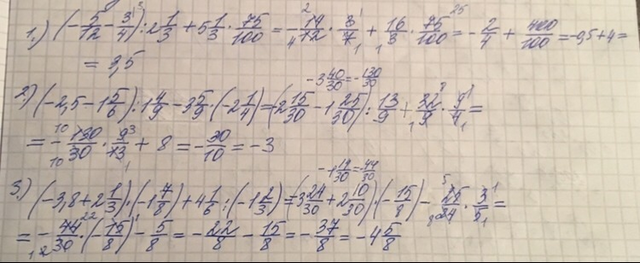 1.) (-5/12 - 3/4) : 2 1/3 + 5 1/3 · 75/100 = -14/12 · 3/7 + 16/3 · 75/100 = -2/4 + 400/100 = -0,5 + 4 =
= 3,5
-3 40/30 = -130/30
2) (-2,5 - 1 5/6) : 1 4/9 - 3 5/9 · (-2 1/4) = (-2 15/30 - 1 25/30) : 13/9 + 32/9 · 9/4 =
= -130/30 · 9/13 + 8 = -30/10 = -3
-1 14/30 = -44/30
3.) (-3,8 + 2 1/3) · (-1 7/8) + 4 1/6 : (-1 2/3) = (-3 24/30 + 2 10/30) · (-15/8) - 25/24 · 3/5 =
= -44/30 · (-15/8) - 5/8 = -22/8 - 15/8 = -37/8 = -4 5/8